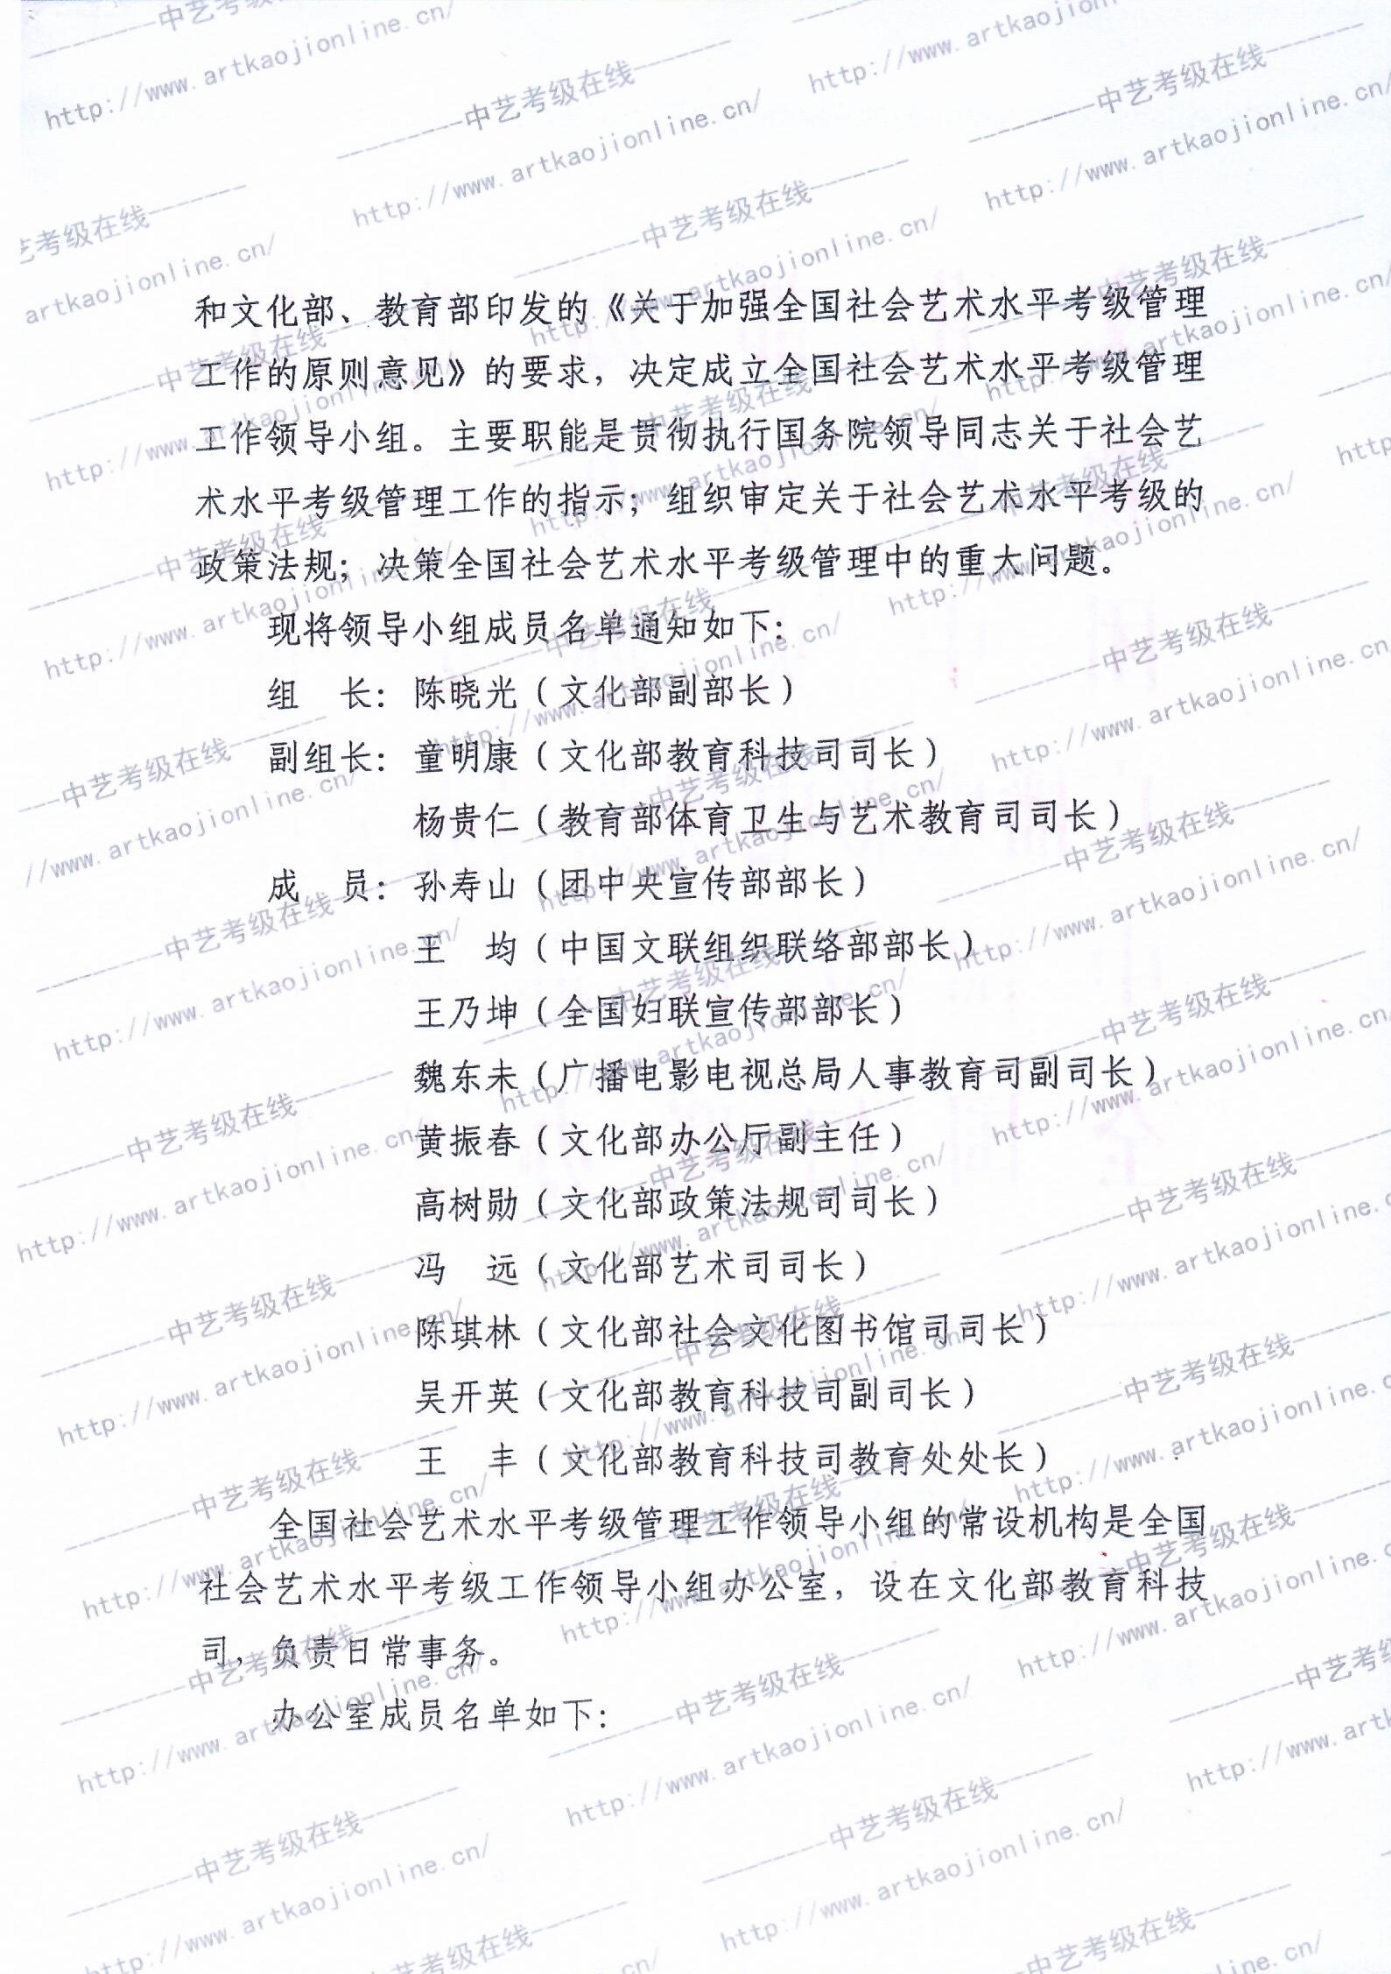 和文化部、教育部印发的《关于加强全国社会艺术水平考级管理
工作的原则意见》的要求，决定成立全国社会艺术水平考级管理
工作领导小组。主要职能是贯彻执行国务院领导同志关于社会艺
术水平考级管理工作的指示；组织审定关于社会艺术水平考级的
政策法规；决策全国社会艺术水平考级管理中的重大问题。
现将领导小组成员名单通知如下：
组　长：陈晓光（文化部副部长）
副组长：童明康（文化部教育科技司司长）
杨贵仁（教育部体育卫生与艺术教育司司长）
成　员：孙寿山（团中央宣传部部长）
王　均（中国文联组织联络部部长）
王乃坤（全国妇联宣传部部长）
魏东未（广播电影电视总局人事教育司副司长）
黄振春（文化部办公厅副主任）
高树勋（文化部政策法规司司长）
冯　远（文化部艺术司司长）
陈琪林（文化部社会文化图书馆司司长）
吴开英（文化部教育科技司副司长）
王　丰（文化部教育科技司教育处处长）
全国社会艺术水平考级管理工作领导小组的常设机构是全国
社会艺术水平考级工作领导小组办公室，设在文化部教育科技
司，负责日常事务。
办公室成员名单如下：
中艺考级在线
http://www.artkaojionline.cn/